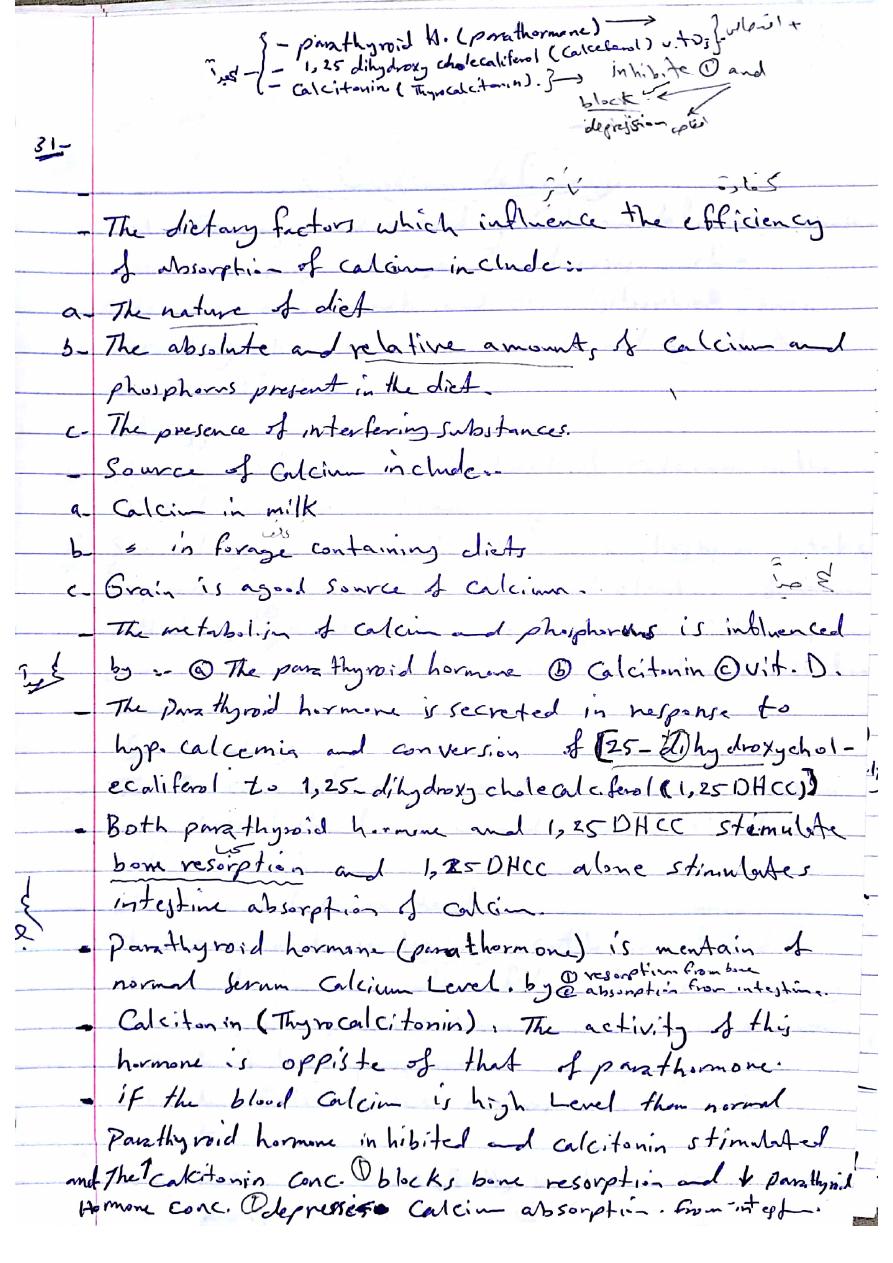 - parathyroid H. (parathormone) →
- 1,25 dihydroxy cholecaliferol (Calceferol) vit D3
- Calcitonin (Thyrocalcitonin). → inhibite ① and
block
depression
31-
تأثر كفاءة
- The dietary factors which influence the efficiency
of absorption of calcium include:-
a- The nature of diet
b- The absolute and relative amounts of Calcium and
phosphorus present in the diet.
c- The presence of interfering substances.
- Source of Calcium include:-
a- Calcium in milk
b- in forage containing diets
c- Grain is a good source of calcium.
- The metabolism of calcium and phosphorus is influenced
by :- ⓐ The parathyroid hormone ⓑ Calcitonin ⓒ vit. D.
- The parathyroid hormone is secreted in response to
hypo calcemia and conversion of [25-dihydroxychol-
ecaliferol to 1,25-dihydroxy cholecalciferol (1,25 DHCC)]
- Both parathyroid hormone and 1,25 DHCC stimulate
bone resorption and 1,25 DHCC alone stimulates
intestine absorption of calcium.
- Parathyroid hormone (parathormone) is mentain of
normal serum Calcium Level. by ① resorption from bone
② absorption from intestine.
- Calcitonin (Thyrocalcitonin). The activity of this
hormone is oppiste of that of parathormone.
- if the blood Calcium is high Level than normal
Parathyroid hormone inhibited and calcitonin stimulated
and The ↑ calcitonin conc. ① blocks bone resorption and ↓ parathyroid
Hormone conc. ① depresses Calcium absorption. from intest.